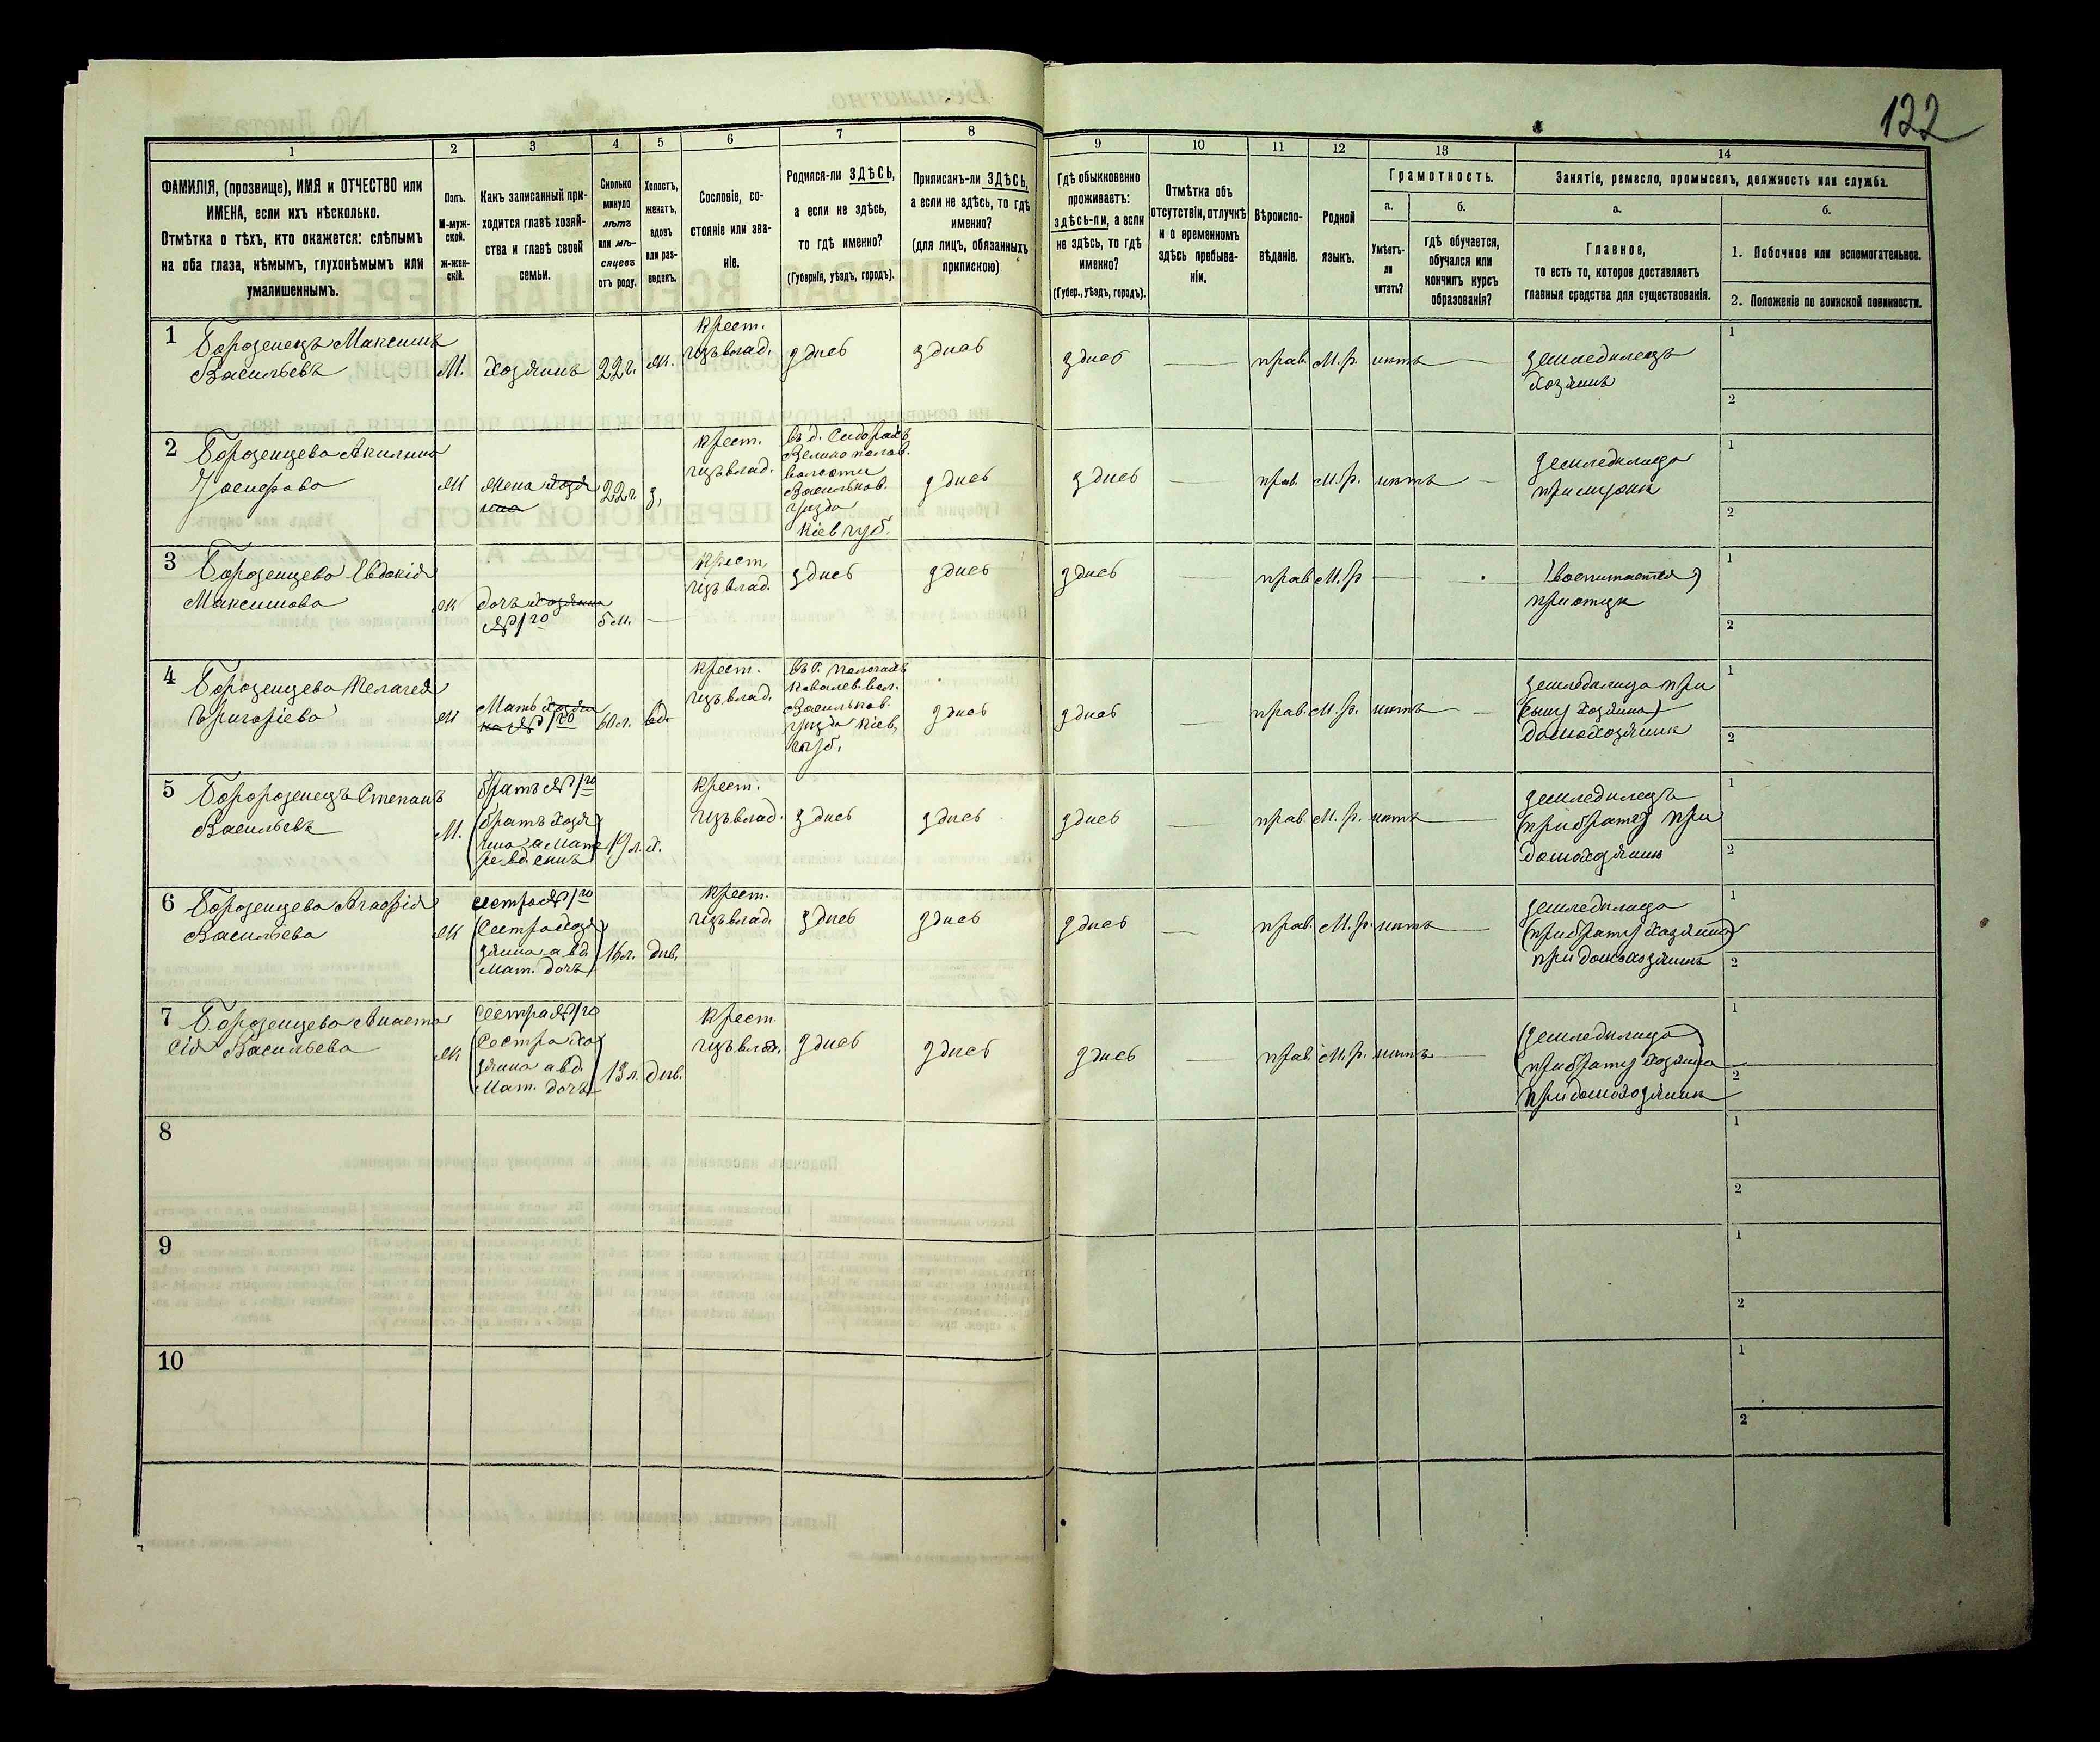 122
1
2
3
4
5
6
7
8
9
10
11
12
13
14
ФАМИЛІЯ, (прозвище), ИМЯ и ОТЧЕСТВО или
ИМЕНА, если ихъ нѣсколько.
Отмѣтка о тѣхъ, кто окажется: слѣпымъ
на оба глаза, нѣмымъ, глухонѣмымъ или
умалишеннымъ.
Полъ.
М-муж-
ской.
ж-жен-
скій.
Какъ записанный при-
ходится главѣ хозяй-
ства и главѣ своей
семьи.
Сколько
минуло
лѣтъ
или мѣ-
сяцевъ
отъ роду.
Холостъ,
женатъ,
вдовъ
или раз-
веденъ.
Сословіе, со-
стояніе или зва-
ніе.
Родился-ли ЗДѢСЬ,
а если не здѣсь,
то гдѣ именно?
(Губернія, уѣздъ, городъ).
Приписанъ-ли ЗДѢСЬ,
а если не здѣсь, то гдѣ
именно?
(для лицъ, обязанныхъ
припискою)
Гдѣ обыкновенно
проживаетъ:
здѣсь-ли, а если
не здѣсь, то гдѣ
именно?
(Губер., уѣздъ, городъ).
Отмѣтка объ
отсутствіи, отлучкѣ
и о временномъ
здѣсь пребыва-
ніи.
Вѣроиспо-
вѣданіе.
Родной
языкъ.
Грамотность.
а.
Умѣетъ-
ли
читать?
б.
гдѣ обучается,
обучался или
кончилъ курсъ
образованія?
Занятіе, ремесло, промыселъ, должность или служба.
а.
Главное,
то есть то, которое доставляетъ
главныя средства для существованія.
б.
1. Побочное или вспомогательное.
2. Положеніе по воинской повинности.
1 Борозенецъ Максимъ
Васильевъ
М.
Хозяинъ
22 г.
ж.
крест.
изъ влад.
здѣсь
здѣсь
здѣсь
прав.
М. р.
нѣтъ
земледѣлецъ
хозяинъ
1
2
2 Борозенцева Акилина
Іосифова
Ж
Жена хозя
ина
22 г.
з.
крест.
изъ влад.
въ д. Сидорахъ
Великополов.
волости
Васильков.
уѣзда
Кіев губ.
здѣсь
здѣсь
прав.
М. р.
нѣтъ
земледѣлица
при мужѣ
1
2
3 Борозенцева Евдокія
Максимова
Ж
дочь хозяина
№ 1го
5 м.
крест.
изъ влад.
здѣсь
здѣсь
здѣсь
прав.
М. р
(воспитается)
при отцѣ
1
2
4 Борозенцева Пелагея
Григоріева
Ж
Мать хозяи
на № 1го
60 л.
вд.
крест.
изъ влад.
Ковалев. вол.
Васильков.
уѣзда Кіев.
губ.
здѣсь
здѣсь
прав.
М. р.
нѣтъ
земледѣлица при
(сыну хозяина)
домохозяинѣ
1
2
5 Боророзенецъ Степанъ
Васильевъ
М.
братъ № 1го
(братъ хозя
ина а мате
ре вд. сынъ)
19 л.
х.
крест.
изъ влад.
здѣсь
здѣсь
здѣсь
прав.
М. р.
нѣтъ
земледѣлецъ
(при братѣ) при
домохозяинѣ
1
2
6 Борозенцева Агафія
Васильева
Ж
сестра № 1го
(Сестра хозя
зяина а вд.
мат. дочь)
16 л.
дѣв.
крест.
изъ влад.
здѣсь
здѣсь
здѣсь
прав.
М. р.
нѣтъ
земледѣлица
(при брату хозяина)
при домохозяинѣ
1
2
7 Борозенцева Анаста
сія Васильева
Ж
Сестра № 1го
(Сестра хо
зяина а вд.
мат. дочь)
13 л.
дѣв.
крест
изъ влад.
здѣсь
здѣсь
здѣсь
прав.
М. р.
нѣтъ
(земледѣлица)
при брату хозяина
при домохозяинѣ
1
2
8
1
2
9
1
2
10
1
2